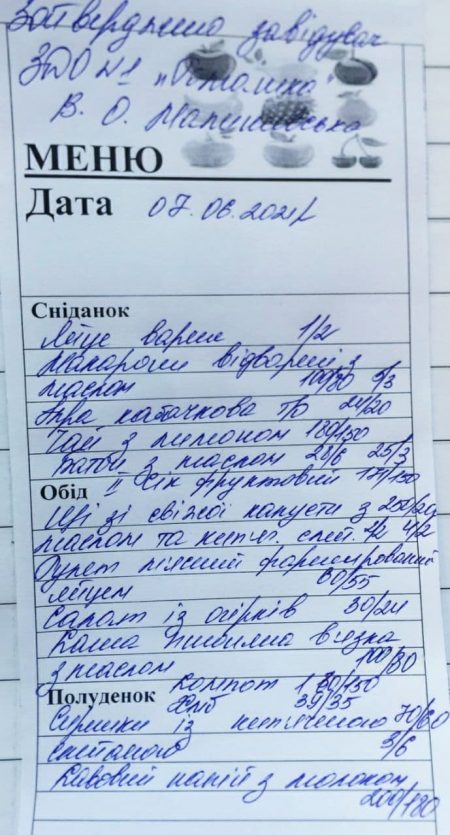 Затверджено завідувач
ЗДО №1 "
В. О.
МЕНЮ
Дата 07.06.2021
Сніданок
Яйце варене 1/2
Макарони відварені з
маслом 100/80 5/3
Ікра кабачкова т/о 24/20
Чай з лимоном 180/150
Батон з маслом 28/6 25/3
Обід II Сік фруктовий
Щі зі свіжої капусти з 250/200
маслом та кип'яч. смет. 4/2
Рулет м'ясний фарширований
яйцем 60/55
Салат із огірків 30/24
Каша пшенична в'язка
з маслом 100/80
Компот 180/150
Полуденок Хліб 39/35
Сирники із кип'яченою 70/60
сметаною 3/6
Кавовий напій з молоком
200/180